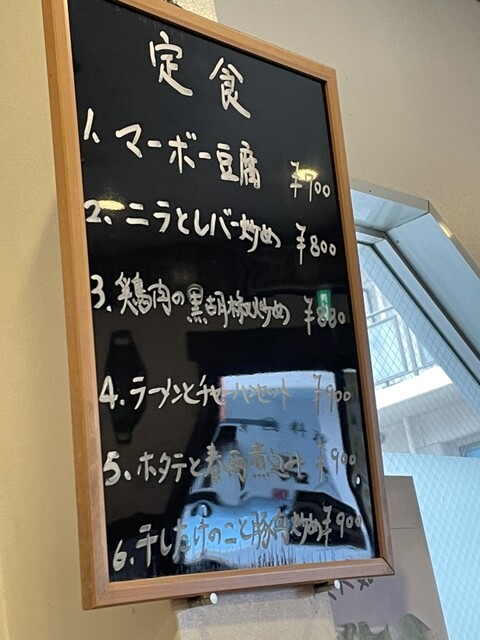 定食
1. マーボー豆腐 ¥700
2. ニラとレバー炒め ¥800
3. 鶏肉の黒胡椒炒め ¥880
4. ラーメンとチャーハンセット ¥900
5. ホタテと春雨煮込み ¥900
6. 干したけのこと豚角炒め ¥900